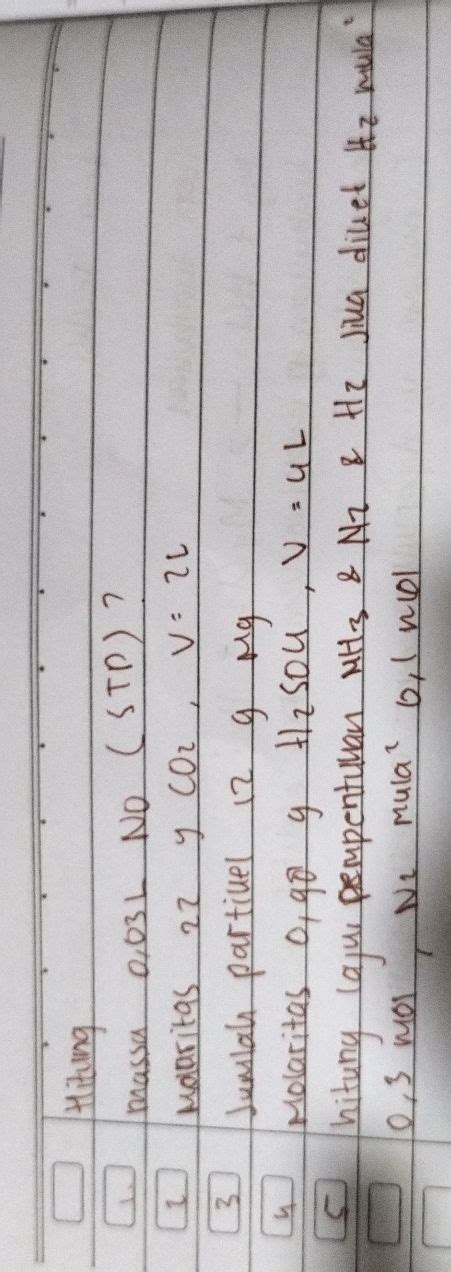 Hitung
1. massa 0,03 L NO (STP)?
2 Molaritas 22 g CO2, V = 2L
3 Jumlah partikel 12 g Mg
4 Molaritas 0,98 g H2SO4, V = 4L
5 hitung laju pempentukan NH3 & N2 & H2 jika diket H2 mula²
0,3 mol, N2 mula² 0,1 mol